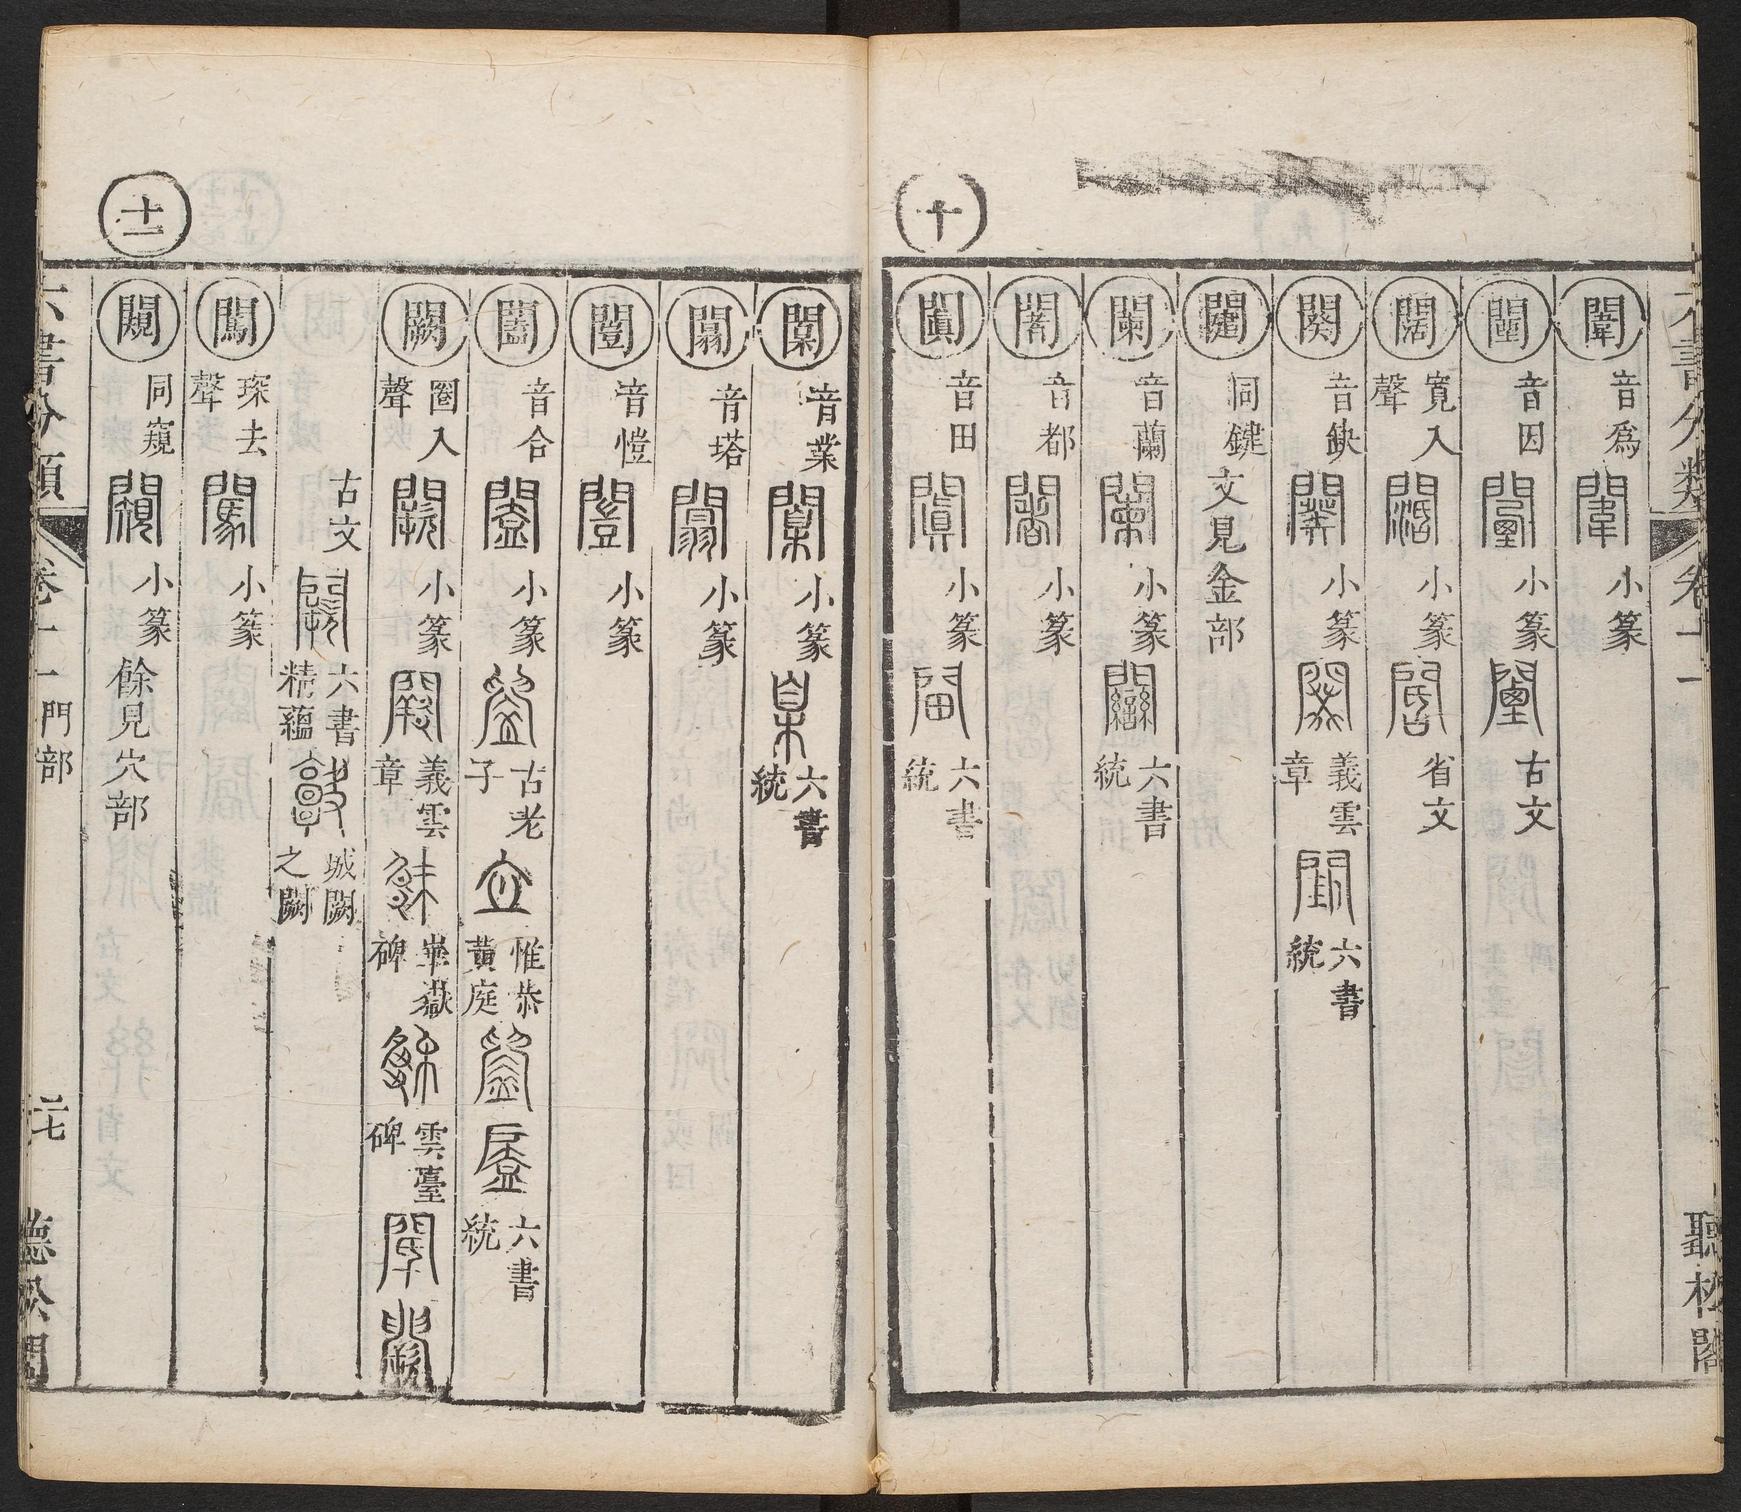 六書分類 卷十一 聽松閣
十
闈 音為 小篆
闉 音因 小篆 古文
闊 寬入聲 小篆 省文
闋 音缺 小篆 義雲章 六書統
闥 同鍵 文見金部
闌 音蘭 小篆 六書統
闍 音都 小篆
闐 音田 小篆 六書統
闑 音業 小篆 六書統
闒 音塔 小篆
闓 音愷 小篆
闔 音合 小篆 古老子 惟恭黃庭 六書統
闕 圈入聲 小篆 義雲章 華嶽碑 雲臺碑
古文 六書精蘊 城闕之闕
闖 琛去聲 小篆
闚 同窺 小篆 餘見穴部
十一
六書分類 卷十一 門部 二七 聽松閣